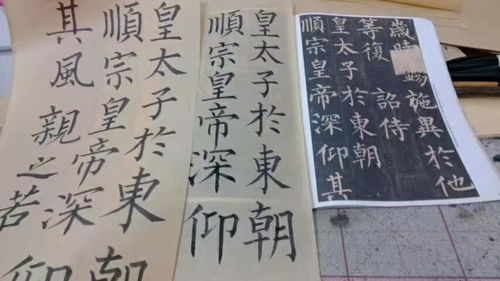 歲時錫施異於他
等復詔侍
皇太子於東朝
順宗皇帝深仰其
皇太子於東朝
順宗皇帝深仰
皇太子於東朝
順宗皇帝深仰
其風親之若